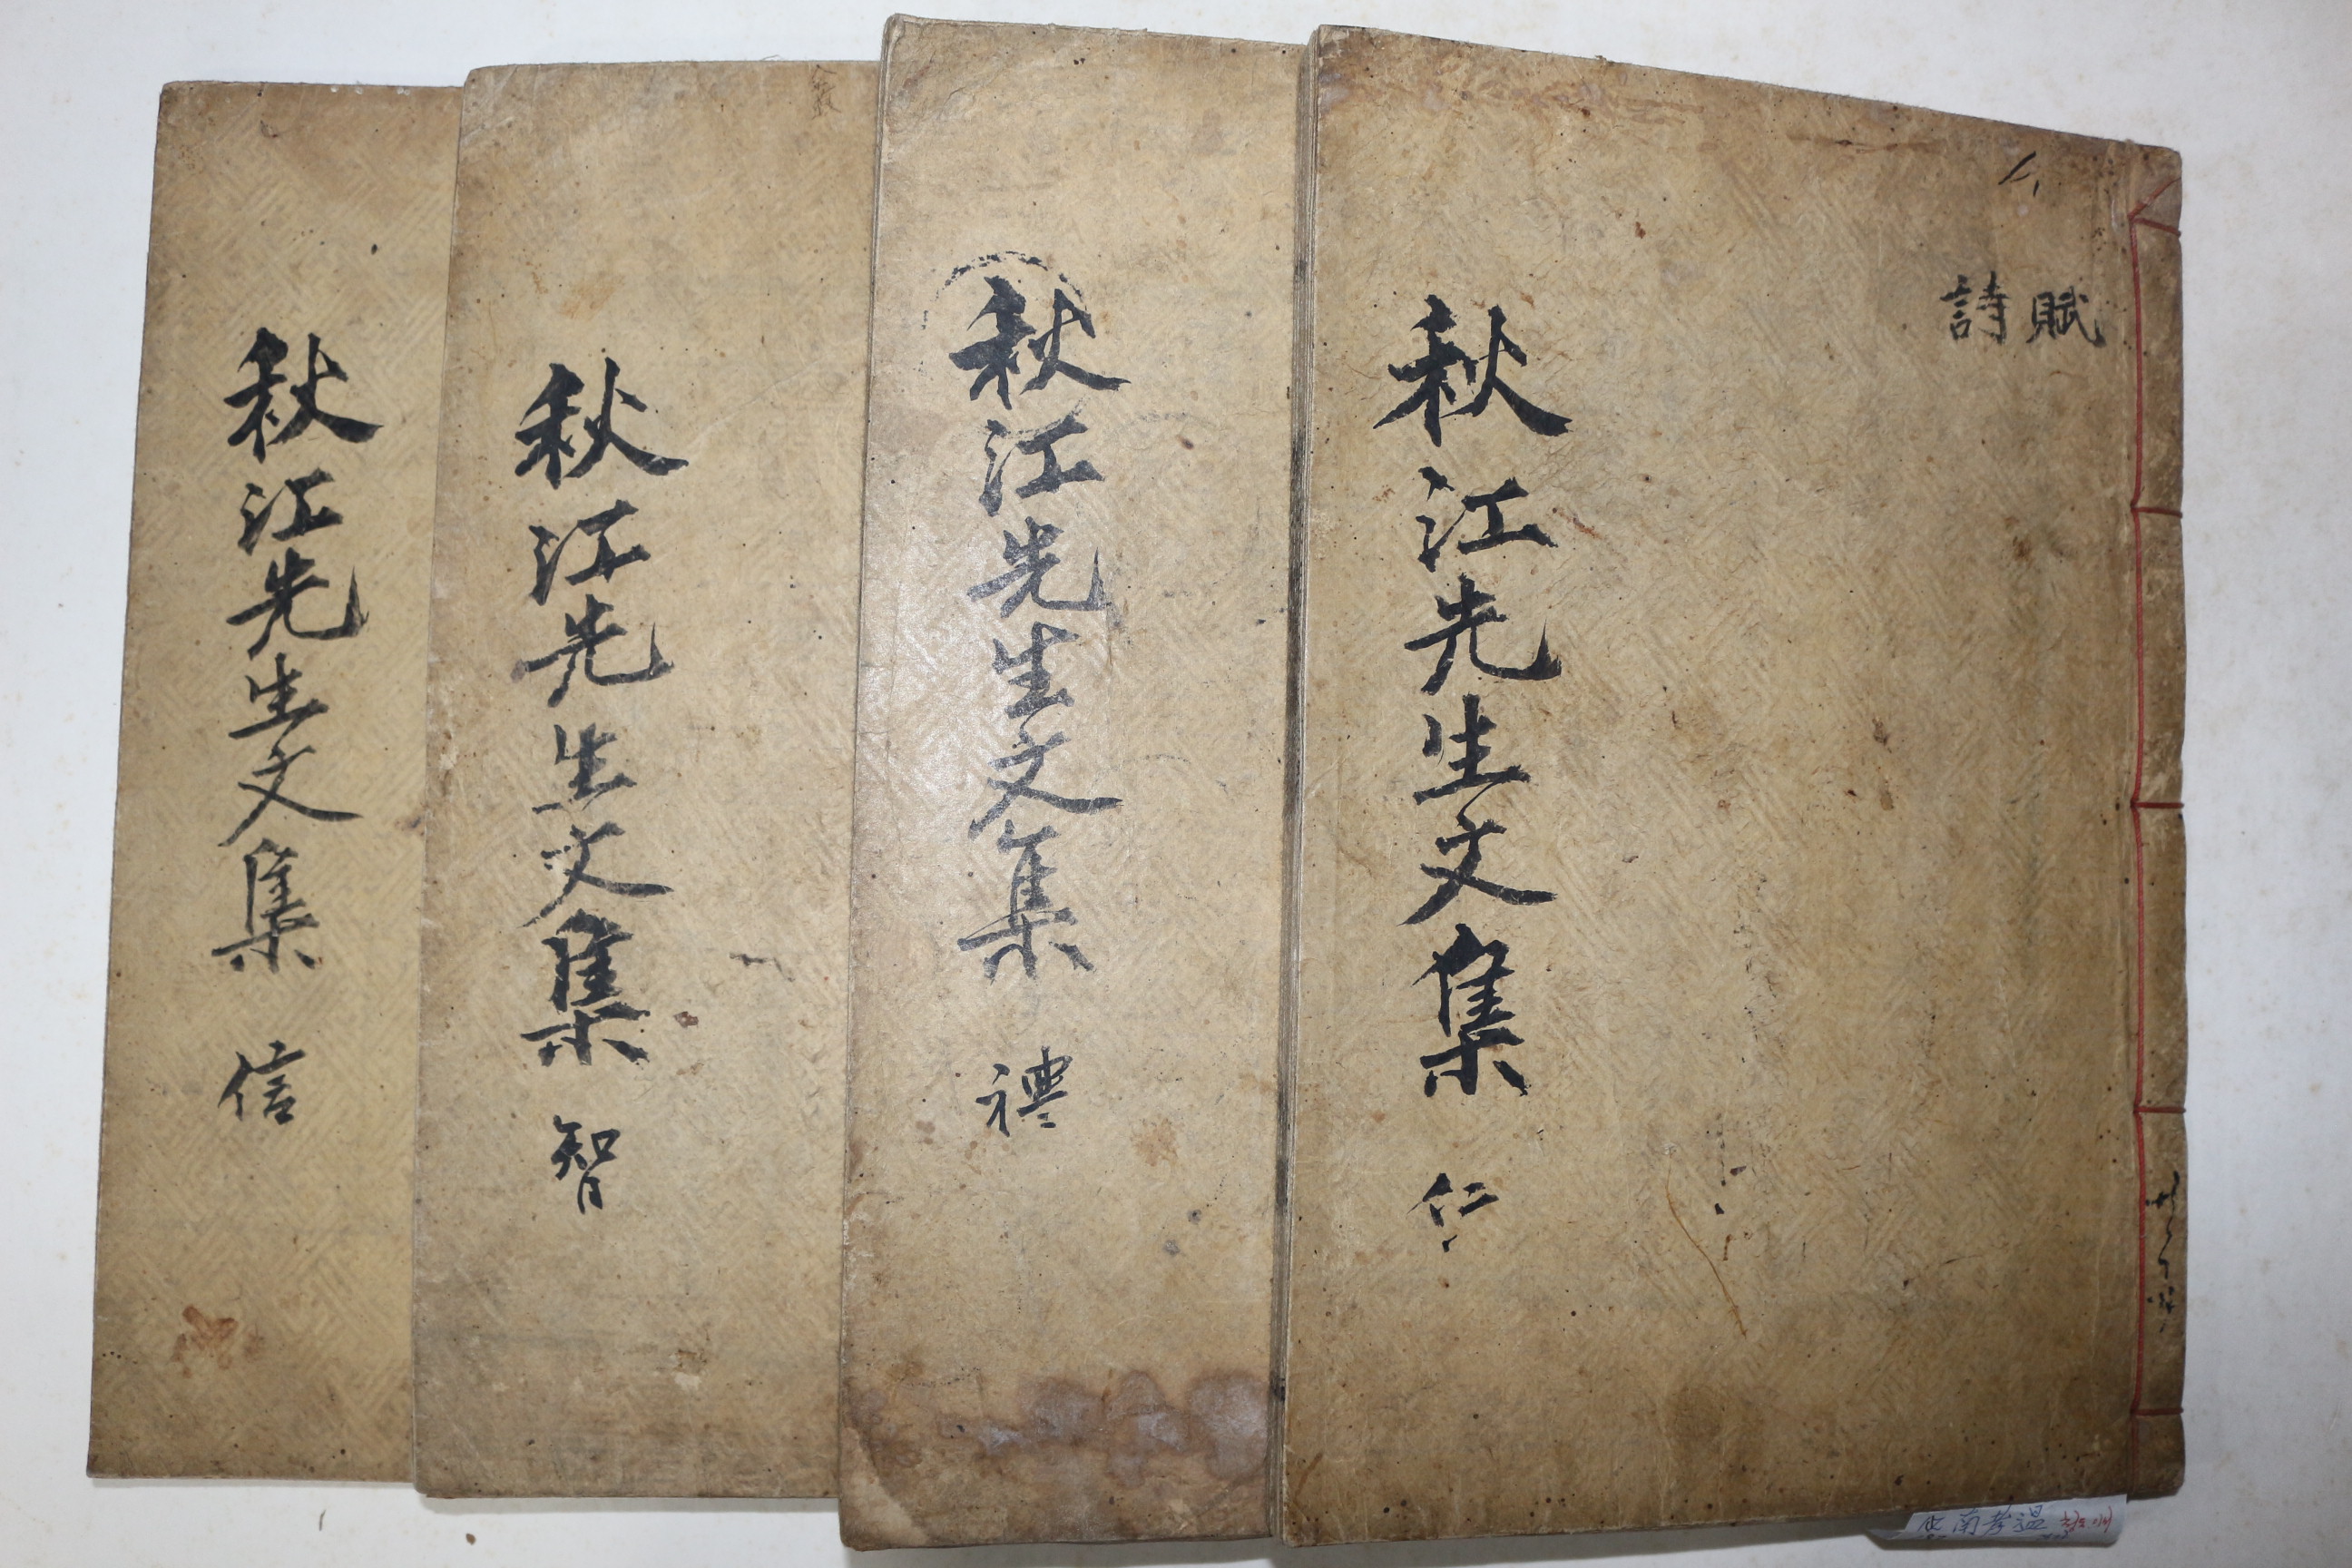 賦
詩
秋江先生文集 仁
秋江先生文集 禮
秋江先生文集 智
秋江先生文集 信
南孝溫